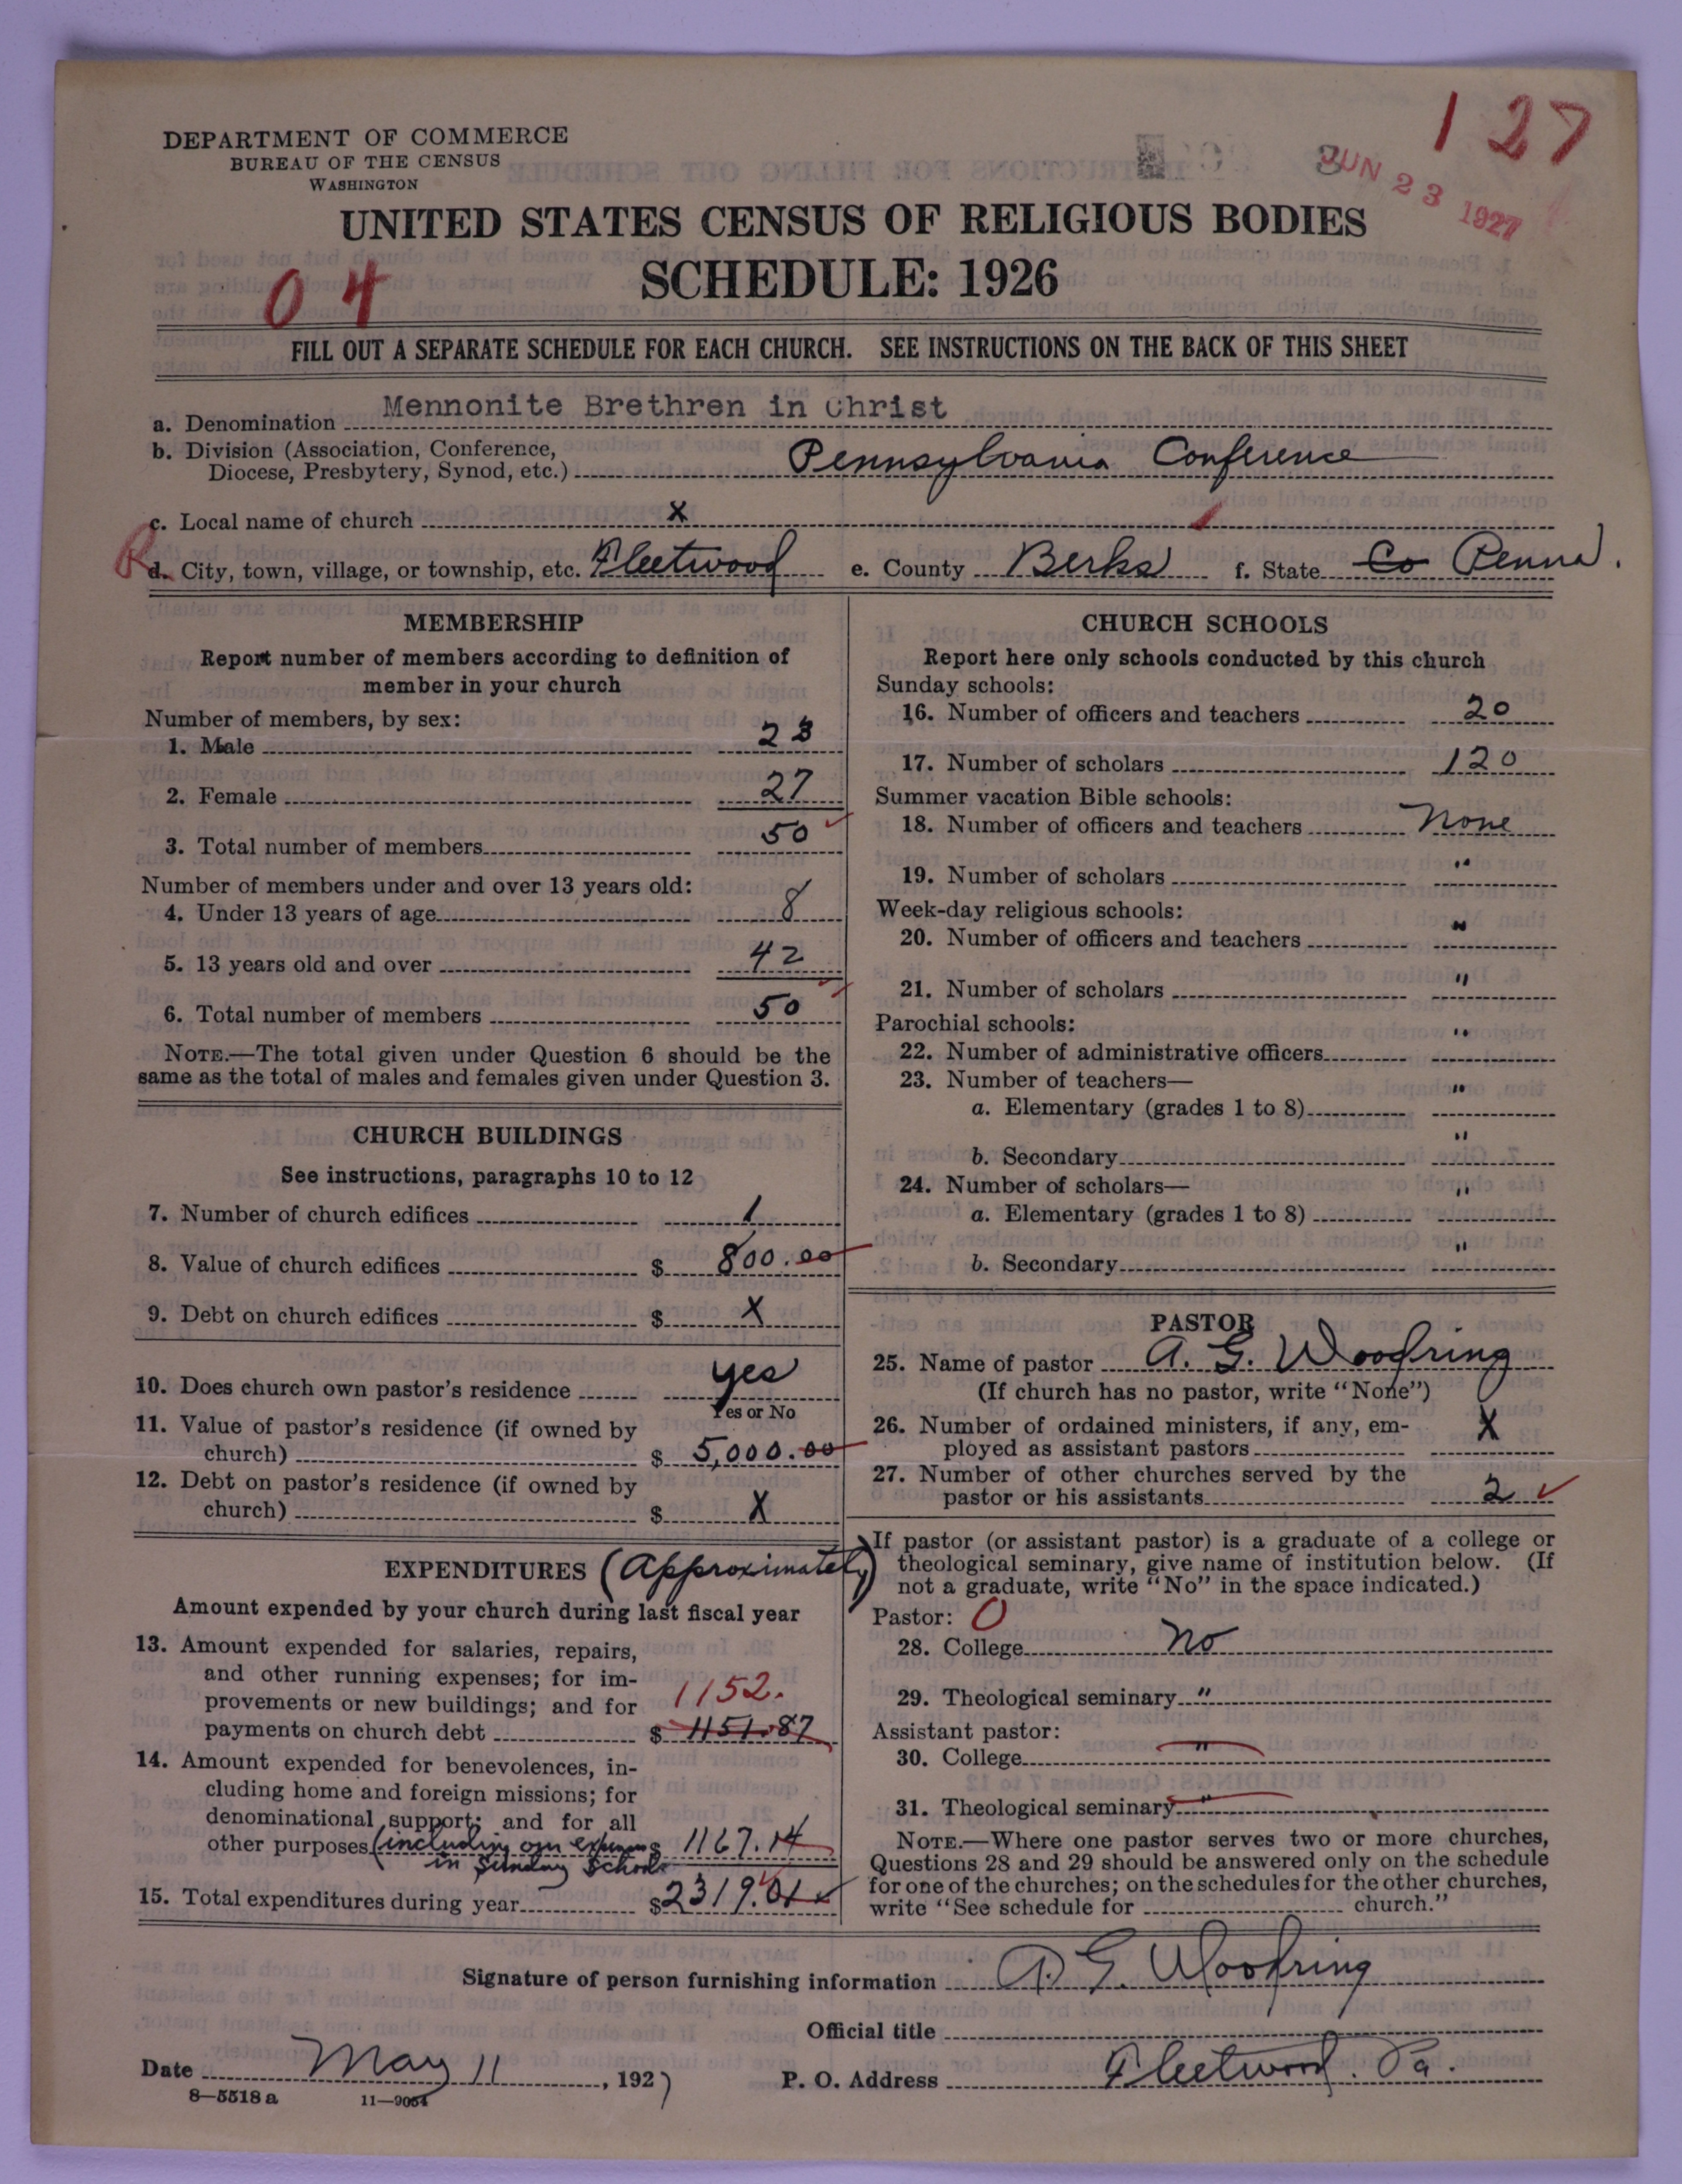 1 27
DEPARTMENT OF COMMERCE
BUREAU OF THE CENSUS
WASHINGTON
JUN 23 1927
UNITED STATES CENSUS OF RELIGIOUS BODIES
04
SCHEDULE: 1926
FILL OUT A SEPARATE SCHEDULE FOR EACH CHURCH. SEE INSTRUCTIONS ON THE BACK OF THIS SHEET
a. Denomination Mennonite Brethren in Christ
b. Division (Association, Conference,
Diocese, Presbytery, Synod, etc.) Pennsylvania Conference
c. Local name of church X
d. City, town, village, or township, etc. Fleetwood e. County Berks f. State Co Penna.
MEMBERSHIP
Report number of members according to definition of
member in your church
Number of members, by sex:
1. Male 23
2. Female 27
3. Total number of members 50
Number of members under and over 13 years old:
4. Under 13 years of age 8
5. 13 years old and over 42
6. Total number of members 50
NOTE.—The total given under Question 6 should be the
same as the total of males and females given under Question 3.
CHURCH BUILDINGS
See instructions, paragraphs 10 to 12
7. Number of church edifices 1
8. Value of church edifices $ 800.00
9. Debt on church edifices $ X
10. Does church own pastor's residence yes
Yes or No
11. Value of pastor's residence (if owned by
church) $ 5,000.00
12. Debt on pastor's residence (if owned by
church) $ X
EXPENDITURES (Approximately)
Amount expended by your church during last fiscal year
13. Amount expended for salaries, repairs,
and other running expenses; for im-
provements or new buildings; and for 1152.
payments on church debt $ 1151.87
14. Amount expended for benevolences, in-
cluding home and foreign missions; for
denominational support; and for all
other purposes (including our expenses 1167.14
in Sunday School
15. Total expenditures during year $ 2319.01
CHURCH SCHOOLS
Report here only schools conducted by this church
Sunday schools:
16. Number of officers and teachers 20
17. Number of scholars 120
Summer vacation Bible schools:
18. Number of officers and teachers None
19. Number of scholars "
Week-day religious schools:
20. Number of officers and teachers "
21. Number of scholars "
Parochial schools:
22. Number of administrative officers "
23. Number of teachers—
a. Elementary (grades 1 to 8) "
b. Secondary "
24. Number of scholars—
a. Elementary (grades 1 to 8) "
b. Secondary "
PASTOR
25. Name of pastor A. G. Woodring
(If church has no pastor, write "None")
26. Number of ordained ministers, if any, em-
ployed as assistant pastors X
27. Number of other churches served by the
pastor or his assistants 2
If pastor (or assistant pastor) is a graduate of a college or
theological seminary, give name of institution below. (If
not a graduate, write "No" in the space indicated.)
Pastor: O
28. College No
29. Theological seminary "
Assistant pastor:
30. College "
31. Theological seminary "
NOTE.—Where one pastor serves two or more churches,
Questions 28 and 29 should be answered only on the schedule
for one of the churches; on the schedules for the other churches,
write "See schedule for church."
Signature of person furnishing information A. G. Woodring
Official title
Date May 11, 1927 P. O. Address Fleetwood. Pa.
8—5518 a 11—9054